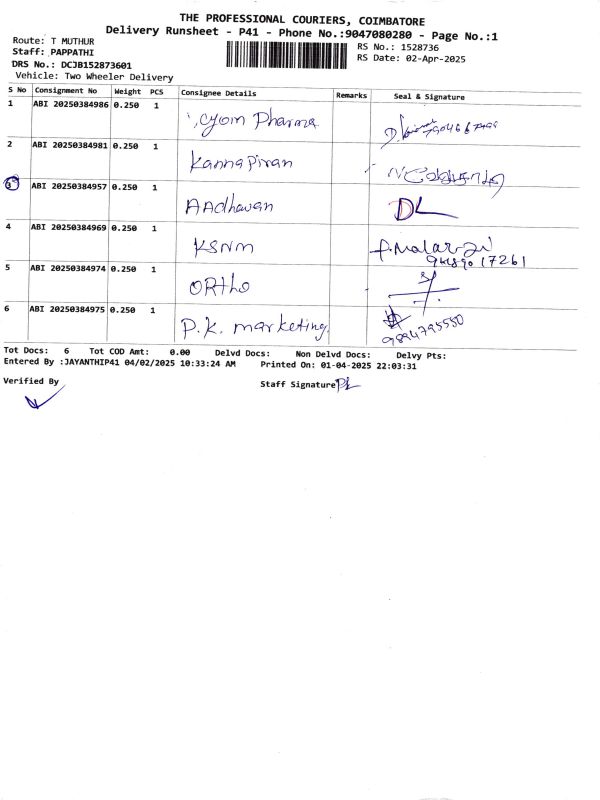 THE PROFESSIONAL COURIERS, COIMBATORE
Delivery Runsheet - P41 - Phone No.:9047080280 - Page No.:1
Route: T MUTHUR
RS No.: 1528736
Staff: PAPPATHI
RS Date: 02-Apr-2025
DRS No.: DCJB152873601
Vehicle: Two Wheeler Delivery
S No Consignment No Weight PCS Consignee Details Remarks Seal & Signature
1 ABI 20250384986 0.250 1 Pharma
2 ABI 20250384981 0.250 1 Kannapiran
3 ABI 20250384957 0.250 1 AAdhavan DL
4 ABI 20250384969 0.250 1 KSNM
5 ABI 20250384974 0.250 1 ORtho
6 ABI 20250384975 0.250 1 P.K. marketing. 9894795550
Tot Docs: 6 Tot COD Amt: 0.00 Delvd Docs: Non Delvd Docs: Delvy Pts:
Entered By :JAYANTHIP41 04/02/2025 10:33:24 AM Printed On: 01-04-2025 22:03:31
Verified By Staff Signature